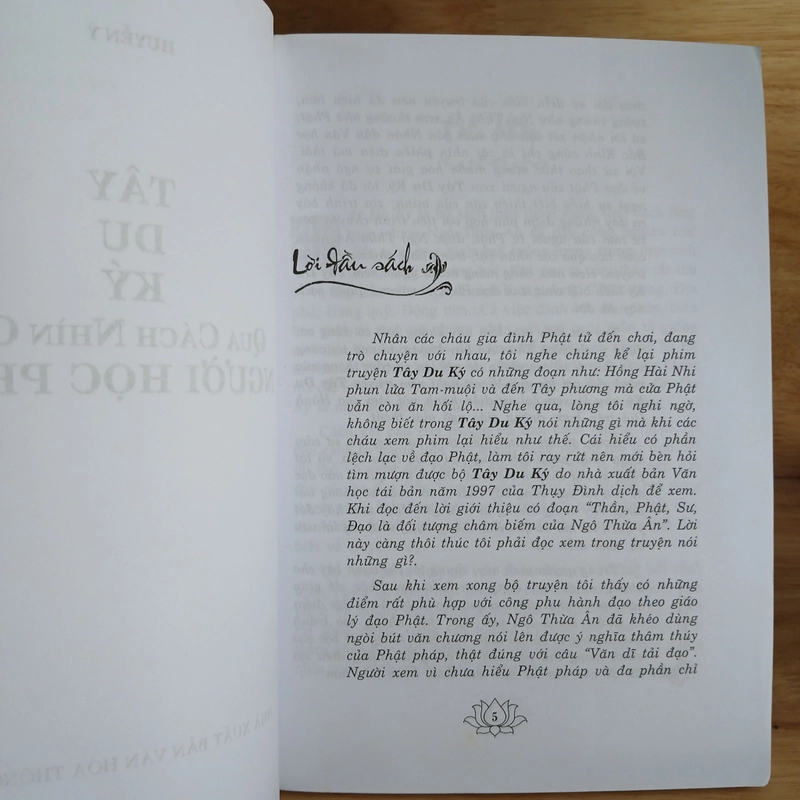 Lời đầu sách
Nhân các cháu gia đình Phật tử đến chơi, đang
trò chuyện với nhau, tôi nghe chúng kể lại phim
truyện Tây Du Ký có những đoạn như: Hồng Hài Nhi
phun lửa Tam-muội và đến Tây phương mà cửa Phật
vẫn còn ăn hối lộ... Nghe qua, lòng tôi nghi ngờ,
không biết trong Tây Du Ký nói những gì mà khi các
cháu xem phim lại hiểu như thế. Cái hiểu có phần
lệch lạc về đạo Phật, làm tôi ray rứt nên mới bèn hỏi
tìm mượn được bộ Tây Du Ký do nhà xuất bản Văn
học tái bản năm 1997 của Thụy Đình dịch để xem.
Khi đọc đến lời giới thiệu có đoạn “Thần, Phật, Sư,
Đạo là đối tượng châm biếm của Ngô Thừa Ân”. Lời
này càng thôi thúc tôi phải đọc xem trong truyện nói
những gì?.
Sau khi xem xong bộ truyện tôi thấy có những
điểm rất phù hợp với công phu hành đạo theo giáo
lý đạo Phật. Trong ấy, Ngô Thừa Ân đã khéo dùng
ngòi bút văn chương nói lên được ý nghĩa thâm thúy
của Phật pháp, thật đúng với câu “Văn dĩ tải đạo”.
Người xem vì chưa hiểu Phật pháp và đa phần chỉ
5
HUYỀN Ý
TÂY
DU
KÝ
QUA CÁCH NHÌN
HỌC
XUẤT BẢN VĂN HÓA